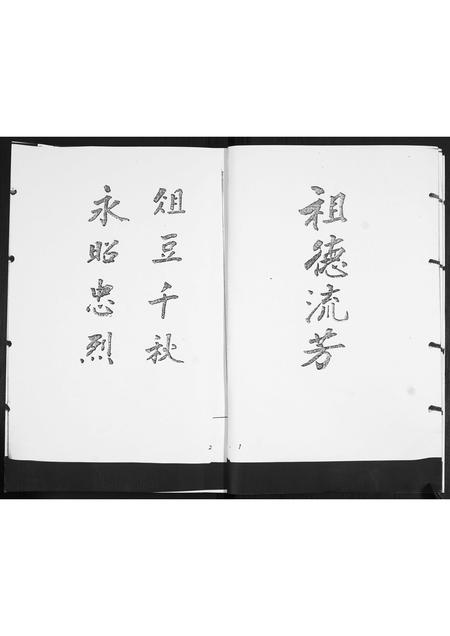 祖德流芳
1
俎豆千秋
永昭忠烈
2